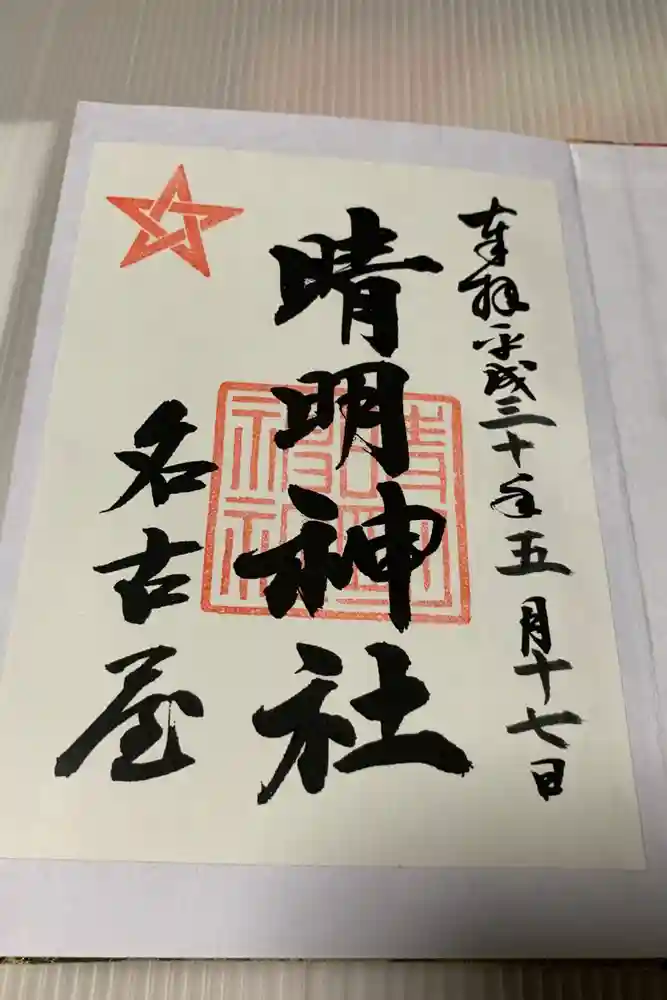 奉拝平成三十年五月十七日
晴明神社
名古屋
晴明
神社